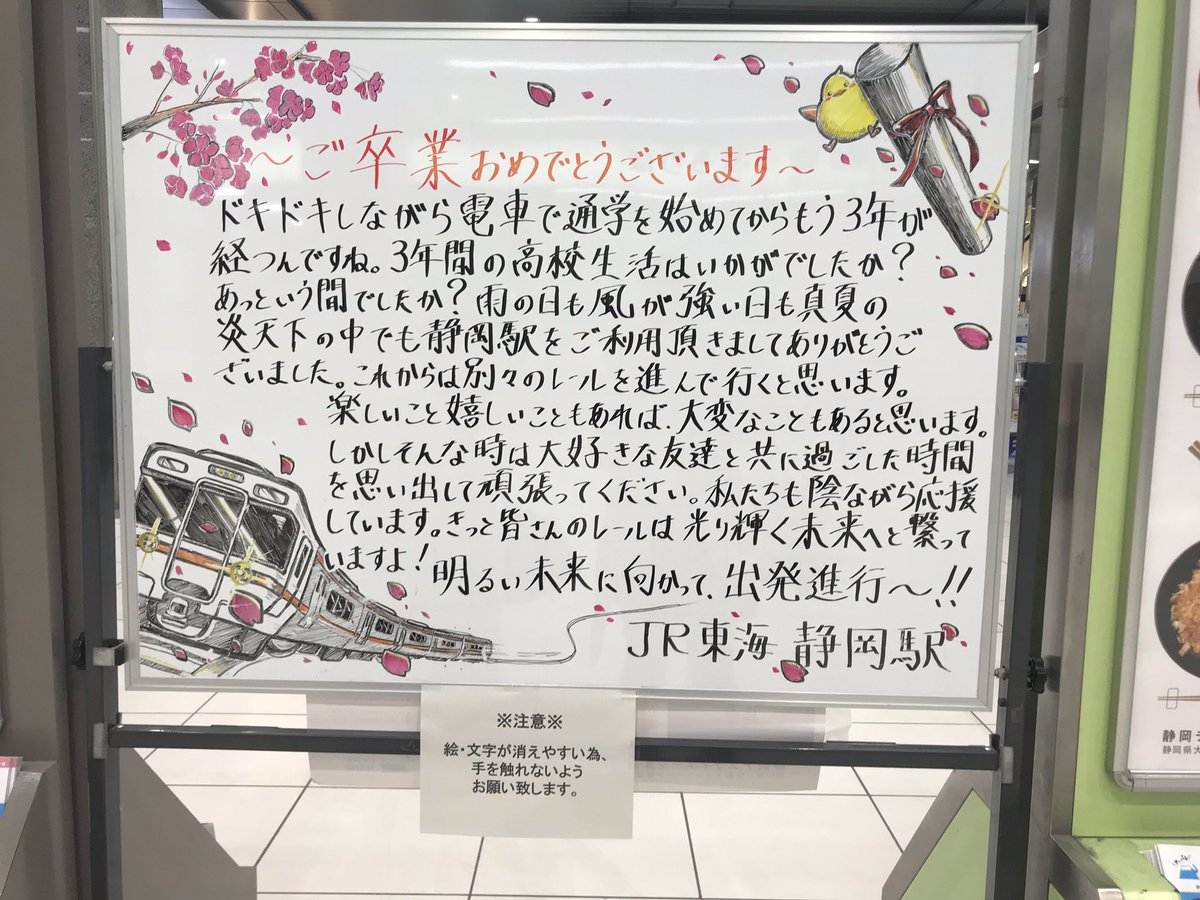 ～ご卒業おめでとうございます～
ドキドキしながら電車で通学を始めてからもう3年が
経つんですね。3年間の高校生活はいかがでしたか？
あっという間でしたか？雨の日も風が強い日も真夏の
炎天下の中でも静岡駅をご利用頂きましてありがとうご
ざいました。これからは別々のレールを進んで行くと思います。
楽しいこと嬉しいこともあれば、大変なこともあると思います。
しかしそんな時は大好きな友達と共に過ごした時間
を思い出して頑張ってください。私たちも陰ながら応援
しています。きっと皆さんのレールは光り輝く未来へと繋って
いますよ！
明るい未来に向かって、出発進行～!!
JR東海 静岡駅
※注意※
絵・文字が消えやすい為、
手を触れないよう
お願い致します。
静岡
静岡県